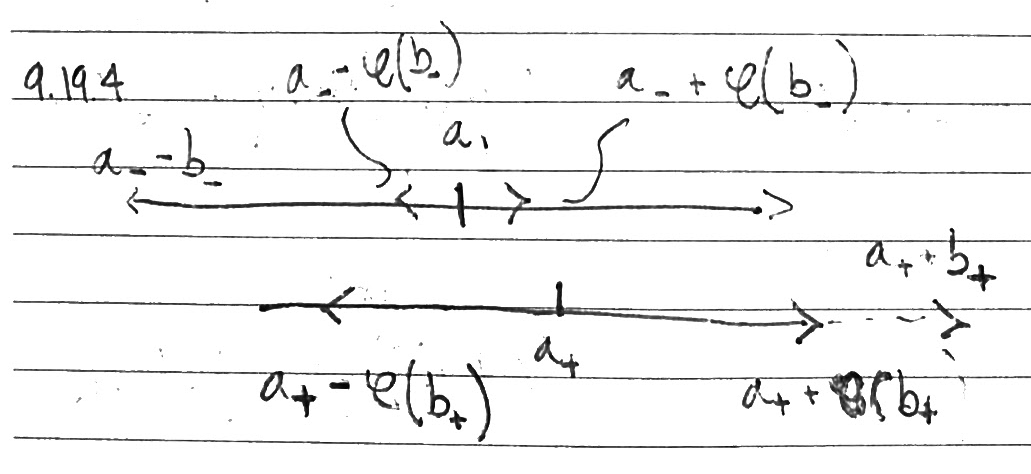 9.19.4 a_- - φ(b_-) a_- + φ(b_-)
a_- - b_- a_1
a_+ + b_+
a_+
a_+ - φ(b_+) a_+ + φ(b_+